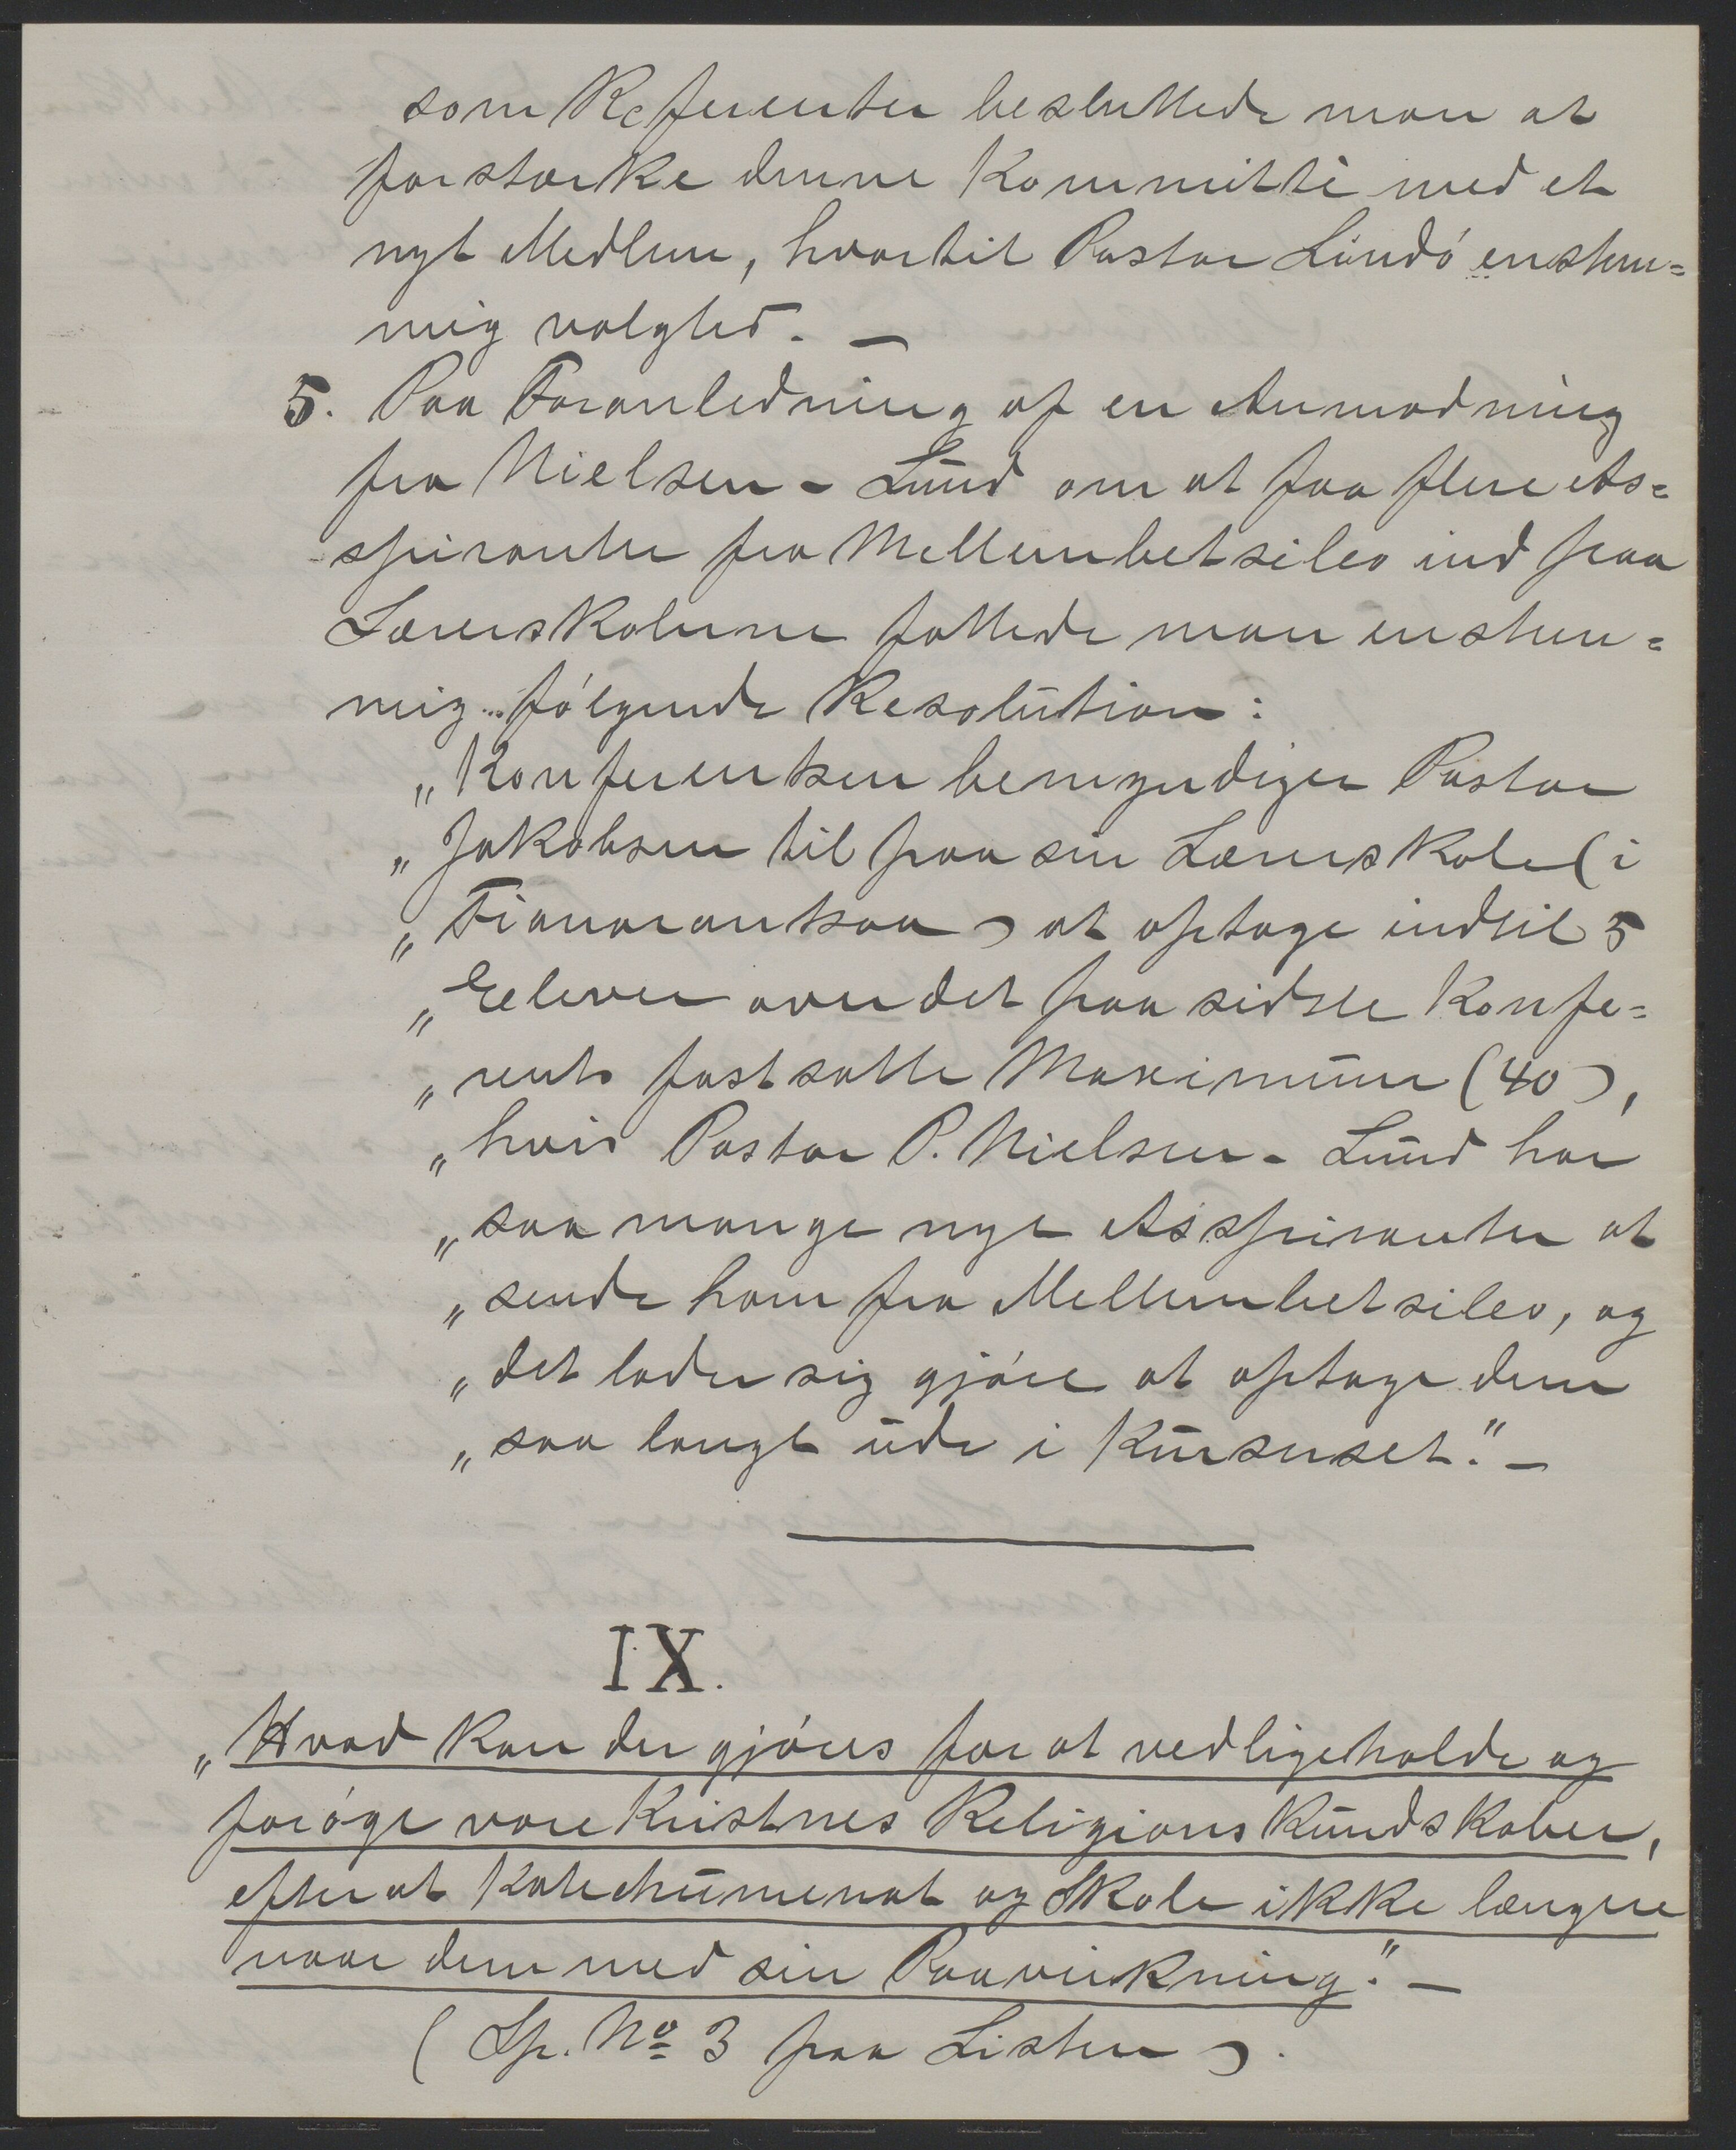 som Referenter besluttede man at
forstærke denne Kommitté med et
nyt Medlem, hvortil Pastor Lindö enstem=
mig valgtes. —
5. Paa Foranledning af en Anmodning
fra Nielsen-Lund om at faa flere As=
spiranter fra Mellembetsileo ind paa
Lærerskolerne fattede man enstem=
mig følgende Resolution:
„Konferentsen bemyndiger Pastor
„Jakobsen til paa sin Lærerskole (i
„Fianarantsoa) at optage indtil 5
„Eelever over det paa sidste Konfe=
„rents fastsatte Maximum (40),
„hvis Pastor P. Nielsen-Lund har
„saa mange nye Asspiranter at
„sende ham fra Mellembetsileo, og
„det lader sig gjøre at optage dem
„saa langt ude i Kursuset." —
IX.
„Hvad kan der gjøres for at vedligeholde og
forøge vore Kristnes Religionskundskaber,
efter at Katechumenat og Skole ikke længere
naar dem med sin Paavirkning." —
(Sp. No 3 paa Listen).